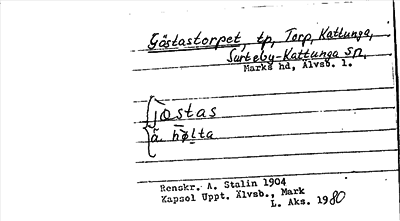 Göstastorpet, tp, Torp, Kattunga,
Surteby-Kattunga sn,
Marks hd, Älvsb. l.
jɵ̀stas
å. hø̄lta
Renskr. A. Stalin 1904
Kapsol Uppt. Älvsb., Mark
L. Aks. 1980